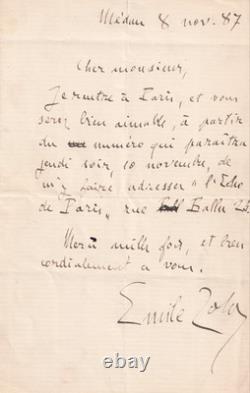 Médan 8 nov. 87
Cher monsieur,
Je rentre à Paris, et vous
serez bien aimable, à partir
du numéro qui paraîtra
jeudi soir, 10 novembre, de
m'y faire adresser "l'Echo
de Paris", rue Ballu 23
Merci mille fois, et bien
cordialement à vous.
Emile Zola
© ebay